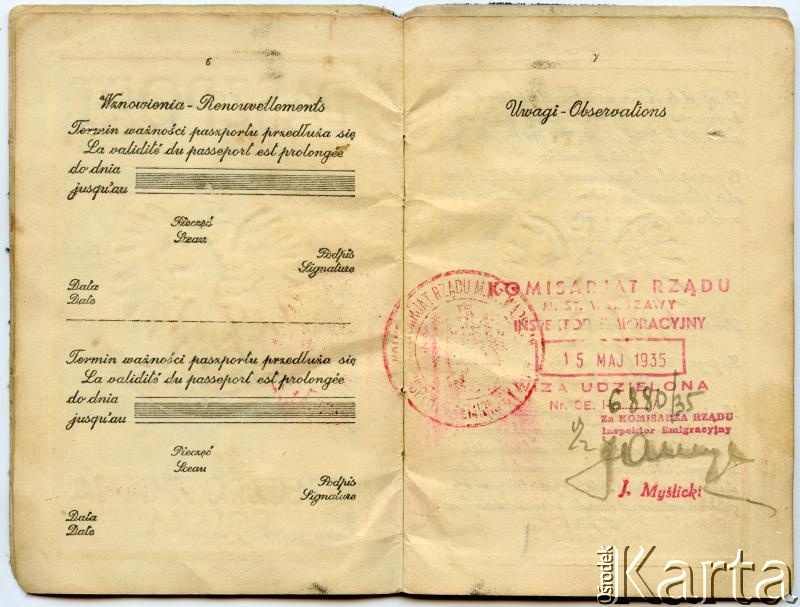 6
Wznowienia - Renouvellements
Termin ważności paszportu przedłuża się
La validité du passeport est prolongée
do dnia
jusqu'au
Pieczęć
Sceau
Podpis
Signature
Data
Date
Termin ważności paszportu przedłuża się
La validité du passeport est prolongée
do dnia
jusqu'au
Pieczęć
Sceau
Podpis
Signature
Data
Date
7
Uwagi - Observations
KOMISARJAT RZĄDU
M. ST. WARSZAWY
INSPEKTOR EMIGRACYJNY
15 MAJ 1935
WIZA UDZIELONA
Nr. CE. I- 6880/35
Za KOMISARZA RZĄDU
Inspektor Emigracyjny
J. Myślicki
Ośrodek
Karta